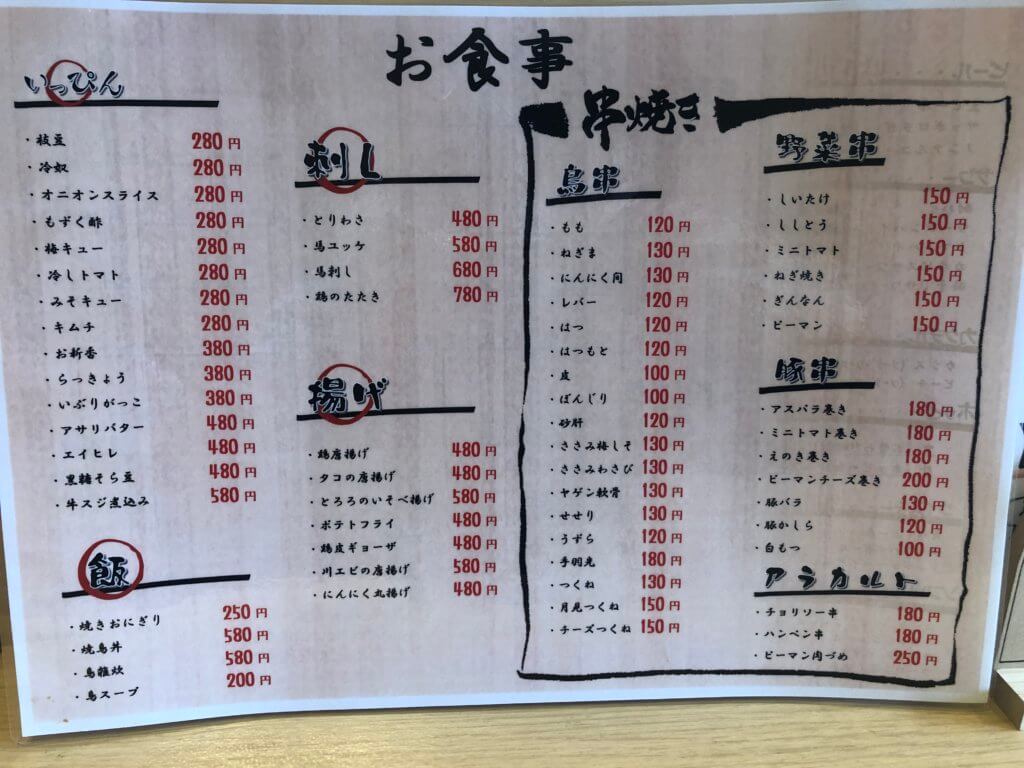 お食事
いっぴん
・枝豆 280円
・冷奴 280円
・オニオンスライス 280円
・もずく酢 280円
・梅キュー 280円
・冷しトマト 280円
・みそキュー 280円
・キムチ 280円
・お新香 380円
・らっきょう 380円
・いぶりがっこ 380円
・アサリバター 480円
・エイヒレ 480円
・黒糖そら豆 480円
・牛スジ煮込み 580円
飯
・焼きおにぎり 250円
・焼鳥丼 580円
・鳥雑炊 580円
・鳥スープ 200円
刺し
・とりわさ 480円
・馬ユッケ 580円
・馬刺し 680円
・鶏のたたき 780円
揚げ
・鶏唐揚げ 480円
・タコの唐揚げ 480円
・とろろのいそべ揚げ 580円
・ポテトフライ 480円
・鶏皮ギョーザ 480円
・川エビの唐揚げ 580円
・にんにく丸揚げ 480円
串焼き
鳥串
・もも 120円
・ねぎま 130円
・にんにく間 130円
・レバー 120円
・はつ 120円
・はつもと 120円
・皮 100円
・ぼんじり 100円
・砂肝 120円
・ささみ梅しそ 130円
・ささみわさび 130円
・ヤゲン軟骨 130円
・せせり 130円
・うずら 120円
・手羽先 180円
・つくね 130円
・月見つくね 150円
・チーズつくね 150円
野菜串
・しいたけ 150円
・ししとう 150円
・ミニトマト 150円
・ねぎ焼き 150円
・ぎんなん 150円
・ピーマン 150円
豚串
・アスパラ巻き 180円
・ミニトマト巻き 180円
・えのき巻き 180円
・ピーマンチーズ巻き 200円
・豚バラ 130円
・豚かしら 120円
・白もつ 100円
アラカルト
・チョリソー串 180円
・ハンペン串 180円
・ピーマン肉づめ 250円